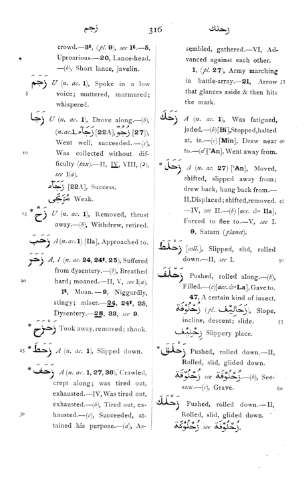 زحم
316
زحلك
crowd.—3ᵃ, (p. 9), see 1ᵃ.—5,
Uproarious—20, Lance-head.
—(b), Short lance, javelin.
U (n. ac. 1), Spoke in a low
voice; muttered, murmured;
whispered.
زجا U (n. ac. 1), Drove along.—(b),
Went well, succeeded.—(c),
Was collected without dif-
see 1(a).
[22A], Success.
Weak.
زح U (n. ac. 1), Removed, thrust
away.—(b), Withdrew, retired.
زحب A (n. ac. 1) [Ila], Approached to.
زحر A, I (n. ac. 24, 24ᵃ, 25), Suffered
from dysentery.—(b), Breathed
hard; moaned.—II, V, see I(a).
1ᵃ, Moan.—9, Niggardly,
stingy; miser.—24, 24ᵃ, 25,
Dysentery.—28, 33, see 9.
زحزح Took away, removed; shook.
زحط A (n. ac. 1), Slipped down.
زحف A (n. ac. 1, 27, 30), Crawled,
crept along; was tired out,
exhausted.—IV, Was tired out,
exhausted.—(b), Tired out, ex-
hausted.—(c), Succeeded, at-
tained his purpose.—(d), As-
sembled, gathered.—VI, Ad-
vanced against each other.
1, (pl. 27), Army marching
in battle-array.—21, Arrow
that glances aside & then hits
the mark.
زحك A (n. ac. 1), Was fatigued,
jaded.—(b)[Bi], Stopped, halted
at, in.—(c)[Min], Drew near
to.—(d)['An], Went away from.
زحل A (n. ac. 27) ['An], Moved,
shifted, slipped away from;
drew back, hung back from.—
II, Displaced; shifted, removed.
—IV, see II.—(b) [acc. & Ila],
Forced to go to.—V, see I.
9, Saturn (planet).
زحلط [coll.], Slipped, slid, rolled
down.—II, see I.
زحلف Pushed, rolled along.—(b),
Filled.—(c)[acc. & La], Gave to.
47, A certain kind of insect.
زحلوفة (pl. زحاليف), Slope,
incline, descent; slide.
Slippery place.
زحلق Pushed, rolled down.—II,
Rolled, slid, glided down.
زحلوقة see زحلوفة.—(b), See-
saw.—(c), Grave.
زحلك Pushed, rolled down.—II,
Rolled, slid, glided down.
زحلوكة see زحلوفة